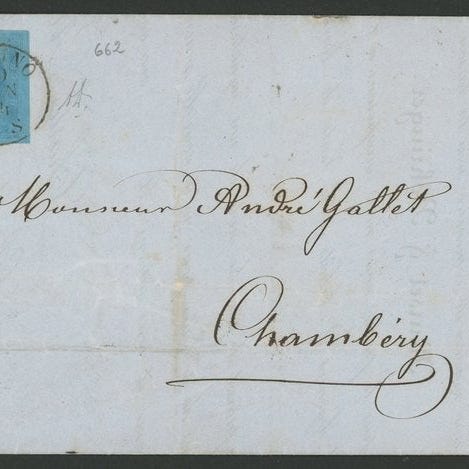 662
Monsieur André Gallet
Chambéry